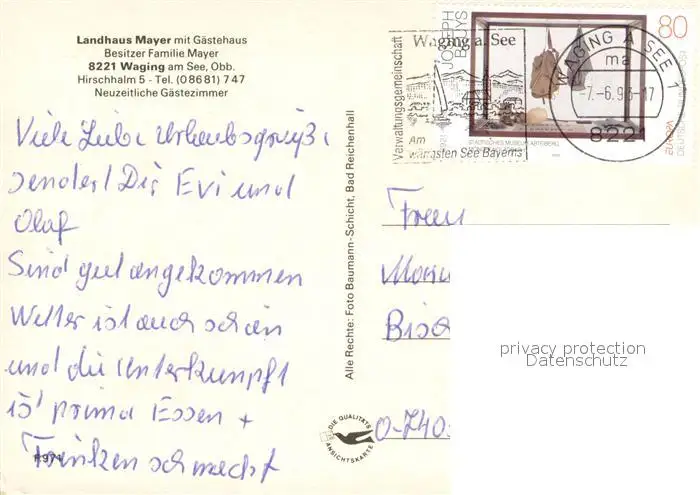 Landhaus Mayer mit Gästehaus
Besitzer Familie Mayer
8221 Waging am See, Obb.
Hirschhalm 5 - Tel. (0 86 81) 7 47
Neuzeitliche Gästezimmer
Viele Liebe Urlaubsgrüße
sendet Dir Evi und
Olaf
Sind gut angekommen
Wetter ist auch schön
und die Unterkunft
ist prima Essen +
Trinken schmeckt
P 971
Alle Rechte: Foto Baumann-Schicht, Bad Reichenhall
DIE QUALITÄTS
ANSICHTSKARTE
Verwaltungsgemeinschaft
Waging a. See
Am
wärmsten See Bayerns
JOSEPH
BEUYS
80
STÄDTISCHES MUSEUM ABTEIBERG
WAGING A SEE 1
ma
-7.-6.93-17
8221
Frau
O-740
privacy protection
Datenschutz